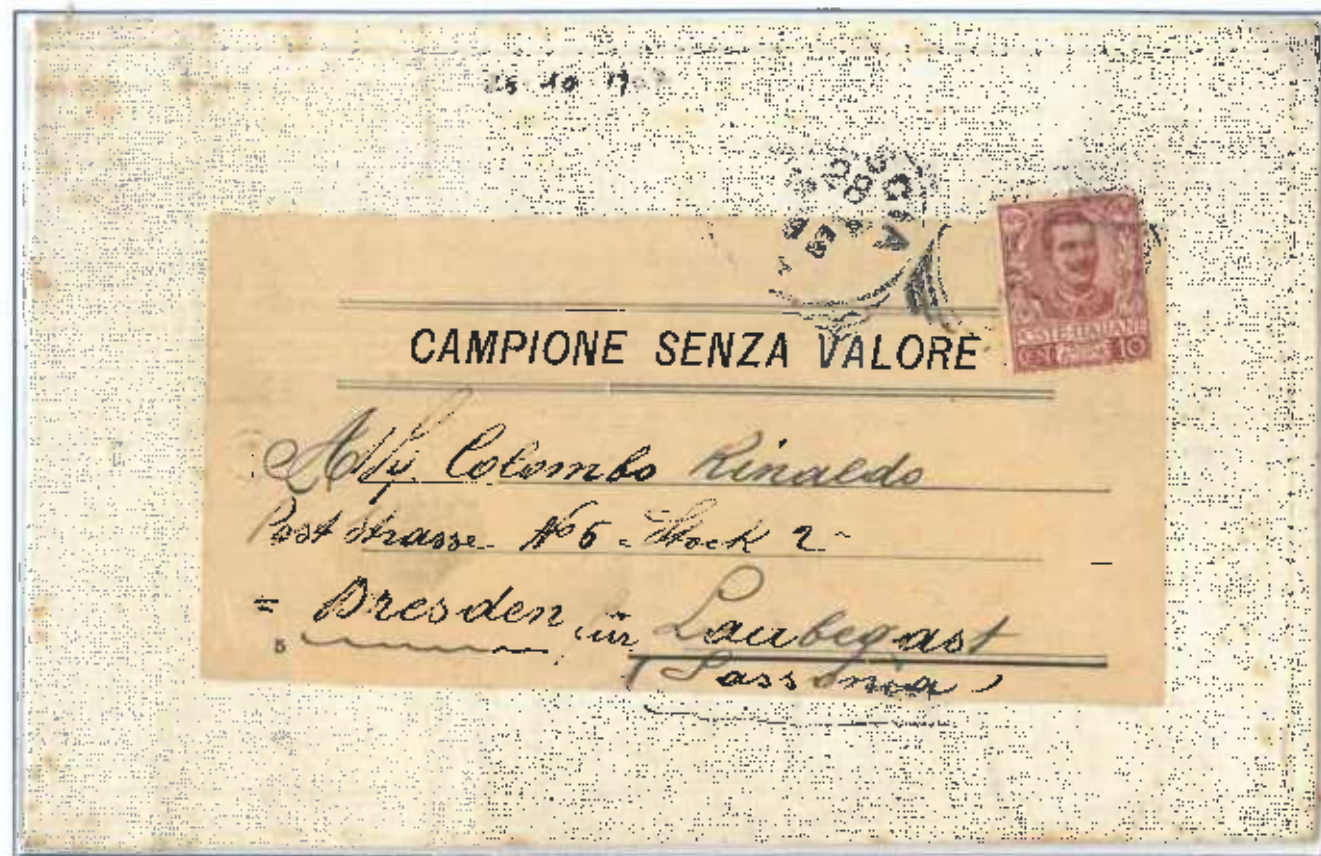 10
BRESCIA
POSTE ITALIANE
CENT. 10
CAMPIONE SENZA VALORE
Colombo Rinaldo
Post strasse N° 6 - Stock 2 -
= Dresden für Laubegast
5
(Sassonia)